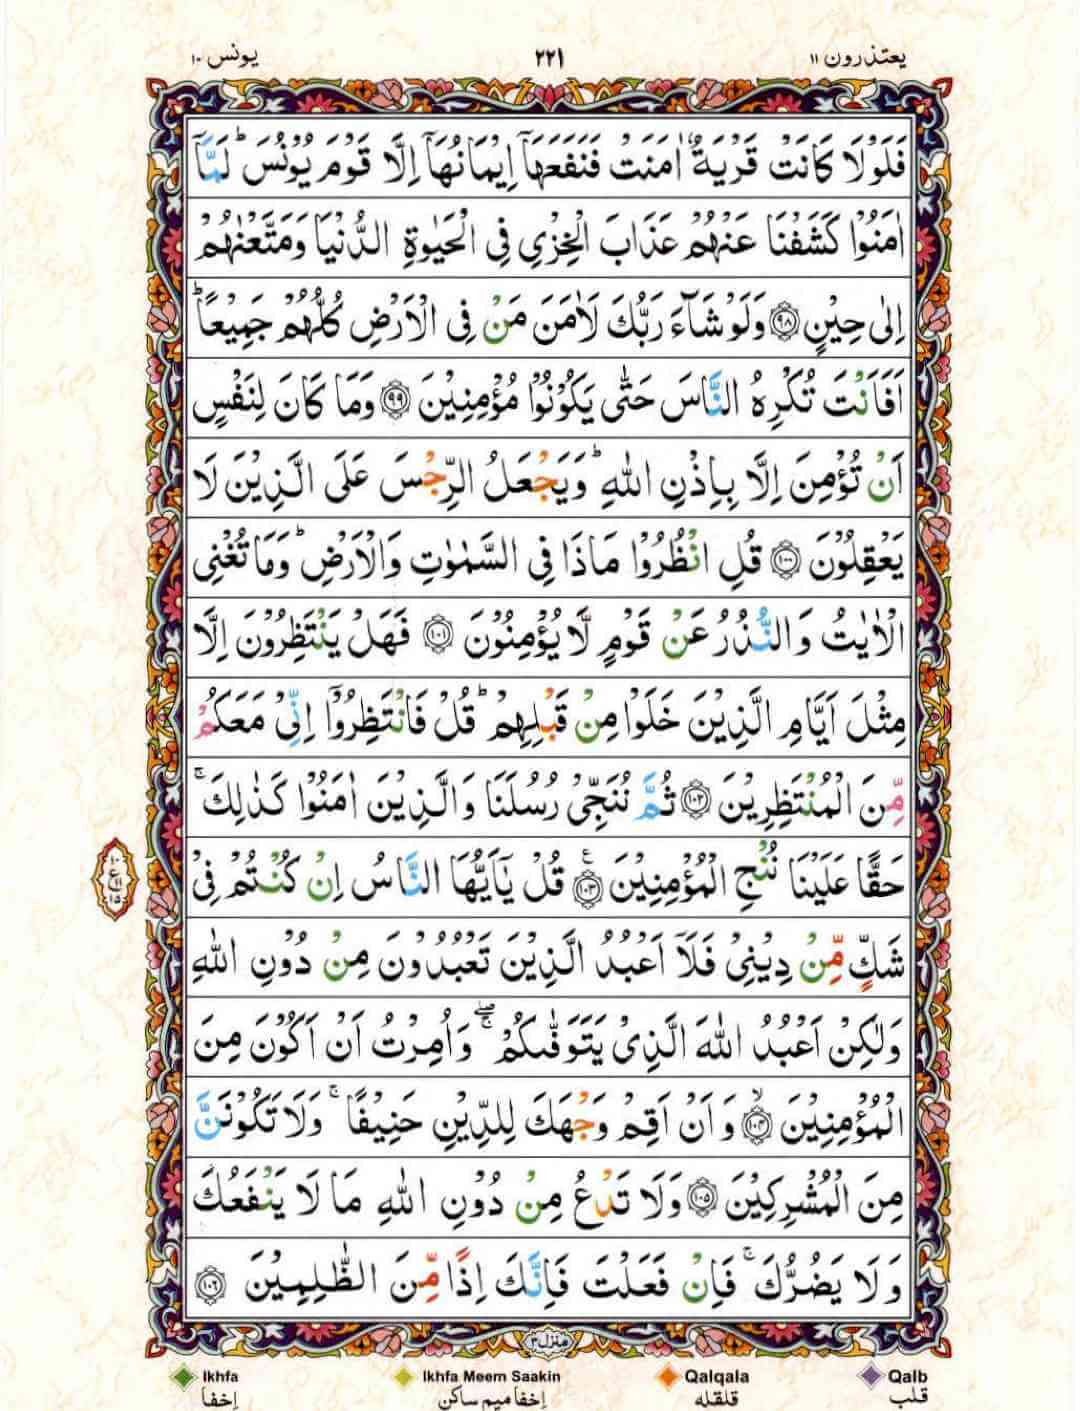 یعتذرون ١١ ٢٢١ یونس ١٠
فَلَوْلَا كَانَتْ قَرْيَةٌ اٰمَنَتْ فَنَفَعَهَاۤ اِيْمَانُهَاۤ اِلَّا قَوْمَ يُوْنُسَ ؕ لَمَّاۤ
اٰمَنُوْا كَشَفْنَا عَنْهُمْ عَذَابَ الْخِزْيِ فِي الْحَيٰوةِ الدُّنْيَا وَمَتَّعْنٰهُمْ
اِلٰى حِيْنٍ ﴿٩٨﴾ وَلَوْ شَآءَ رَبُّكَ لَاٰمَنَ مَنْ فِي الْاَرْضِ كُلُّهُمْ جَمِيْعًا ؕ
اَفَاَنْتَ تُكْرِهُ النَّاسَ حَتّٰى يَكُوْنُوْا مُؤْمِنِيْنَ ﴿٩٩﴾ وَمَا كَانَ لِنَفْسٍ
اَنْ تُؤْمِنَ اِلَّا بِاِذْنِ اللّٰهِ ؕ وَيَجْعَلُ الرِّجْسَ عَلَى الَّذِيْنَ لَا
يَعْقِلُوْنَ ﴿١٠٠﴾ قُلِ انْظُرُوْا مَاذَا فِي السَّمٰوٰتِ وَالْاَرْضِ ؕ وَمَا تُغْنِي
الْاٰيٰتُ وَالنُّذُرُ عَنْ قَوْمٍ لَّا يُؤْمِنُوْنَ ﴿١٠١﴾ فَهَلْ يَنْتَظِرُوْنَ اِلَّا
مِثْلَ اَيَّامِ الَّذِيْنَ خَلَوْا مِنْ قَبْلِهِمْ ؕ قُلْ فَانْتَظِرُوْۤا اِنِّيْ مَعَكُمْ
مِّنَ الْمُنْتَظِرِيْنَ ﴿١٠٢﴾ ثُمَّ نُنَجِّيْ رُسُلَنَا وَالَّذِيْنَ اٰمَنُوْا كَذٰلِكَ ۚ
حَقًّا عَلَيْنَا نُنْجِ الْمُؤْمِنِيْنَ ﴿١٠٣﴾ ع قُلْ يٰۤاَيُّهَا النَّاسُ اِنْ كُنْتُمْ فِيْ
شَكٍّ مِّنْ دِيْنِيْ فَلَاۤ اَعْبُدُ الَّذِيْنَ تَعْبُدُوْنَ مِنْ دُوْنِ اللّٰهِ
وَلٰكِنْ اَعْبُدُ اللّٰهَ الَّذِيْ يَتَوَفّٰىكُمْ ۖۚ وَاُمِرْتُ اَنْ اَكُوْنَ مِنَ
الْمُؤْمِنِيْنَ ﴿١٠٤﴾ۙ وَاَنْ اَقِمْ وَجْهَكَ لِلدِّيْنِ حَنِيْفًا ۚ وَلَا تَكُوْنَنَّ
مِنَ الْمُشْرِكِيْنَ ﴿١٠٥﴾ وَلَا تَدْعُ مِنْ دُوْنِ اللّٰهِ مَا لَا يَنْفَعُكَ
وَلَا يَضُرُّكَ ۚ فَاِنْ فَعَلْتَ فَاِنَّكَ اِذًا مِّنَ الظّٰلِمِيْنَ ﴿١٠٦﴾
١٠
ع
١٥
منزل ٣
Ikhfa Ikhfa Meem Saakin Qalqala Qalb
إخفا إخفا ميم ساكن قلقله قلب